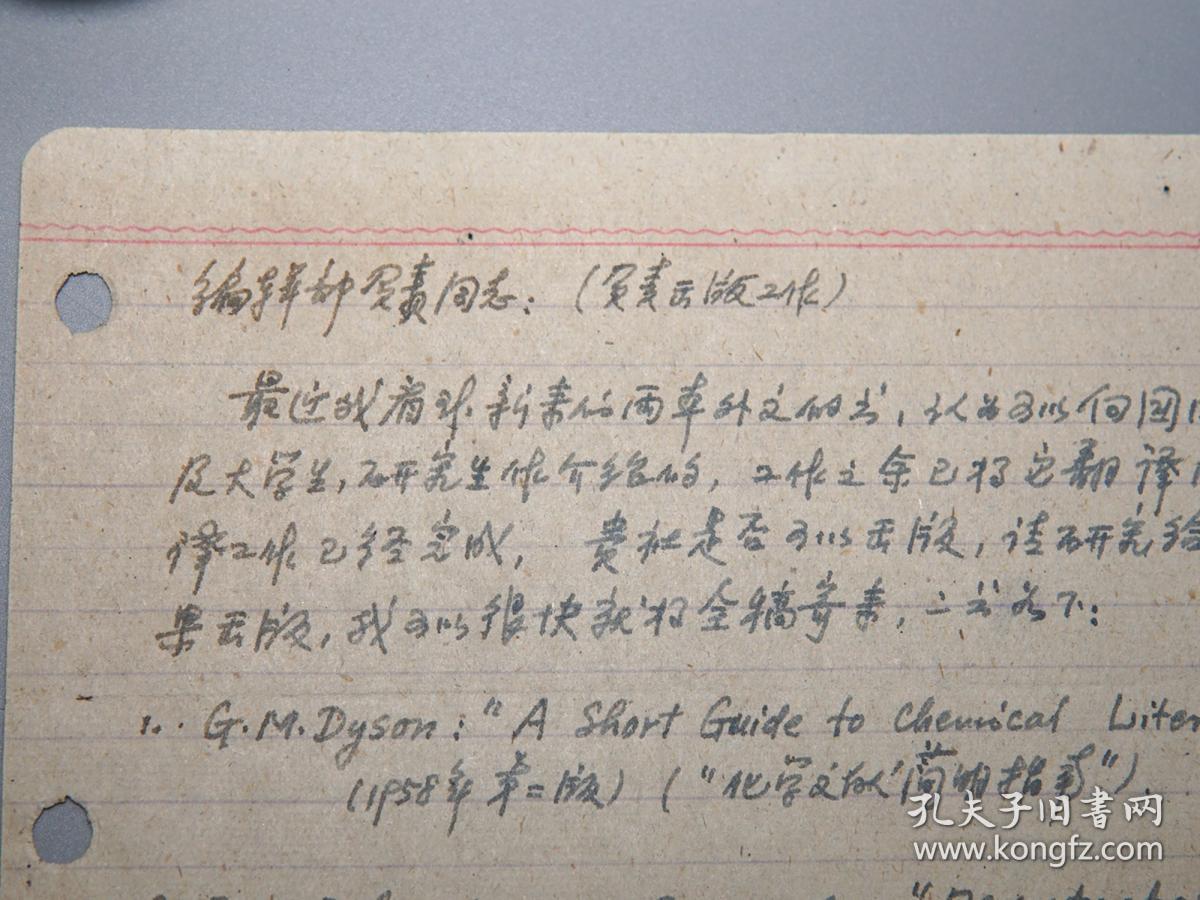 编辑部负责同志：（负责出版工作）
最近我看到新来的两本外文的书，认为可以向国
及大学生，研究生作介绍的，工作之余已将它翻译
译工作已经完成，贵社是否可以出版，请研究给
果出版，我可以很快就将全稿寄来，二书如下：
1. G.M.Dyson："A Short Guide to Chemical Liter
（1958年第二版）（"化学文献简明指南"）．
孔夫子旧书网
www.kongfz.com